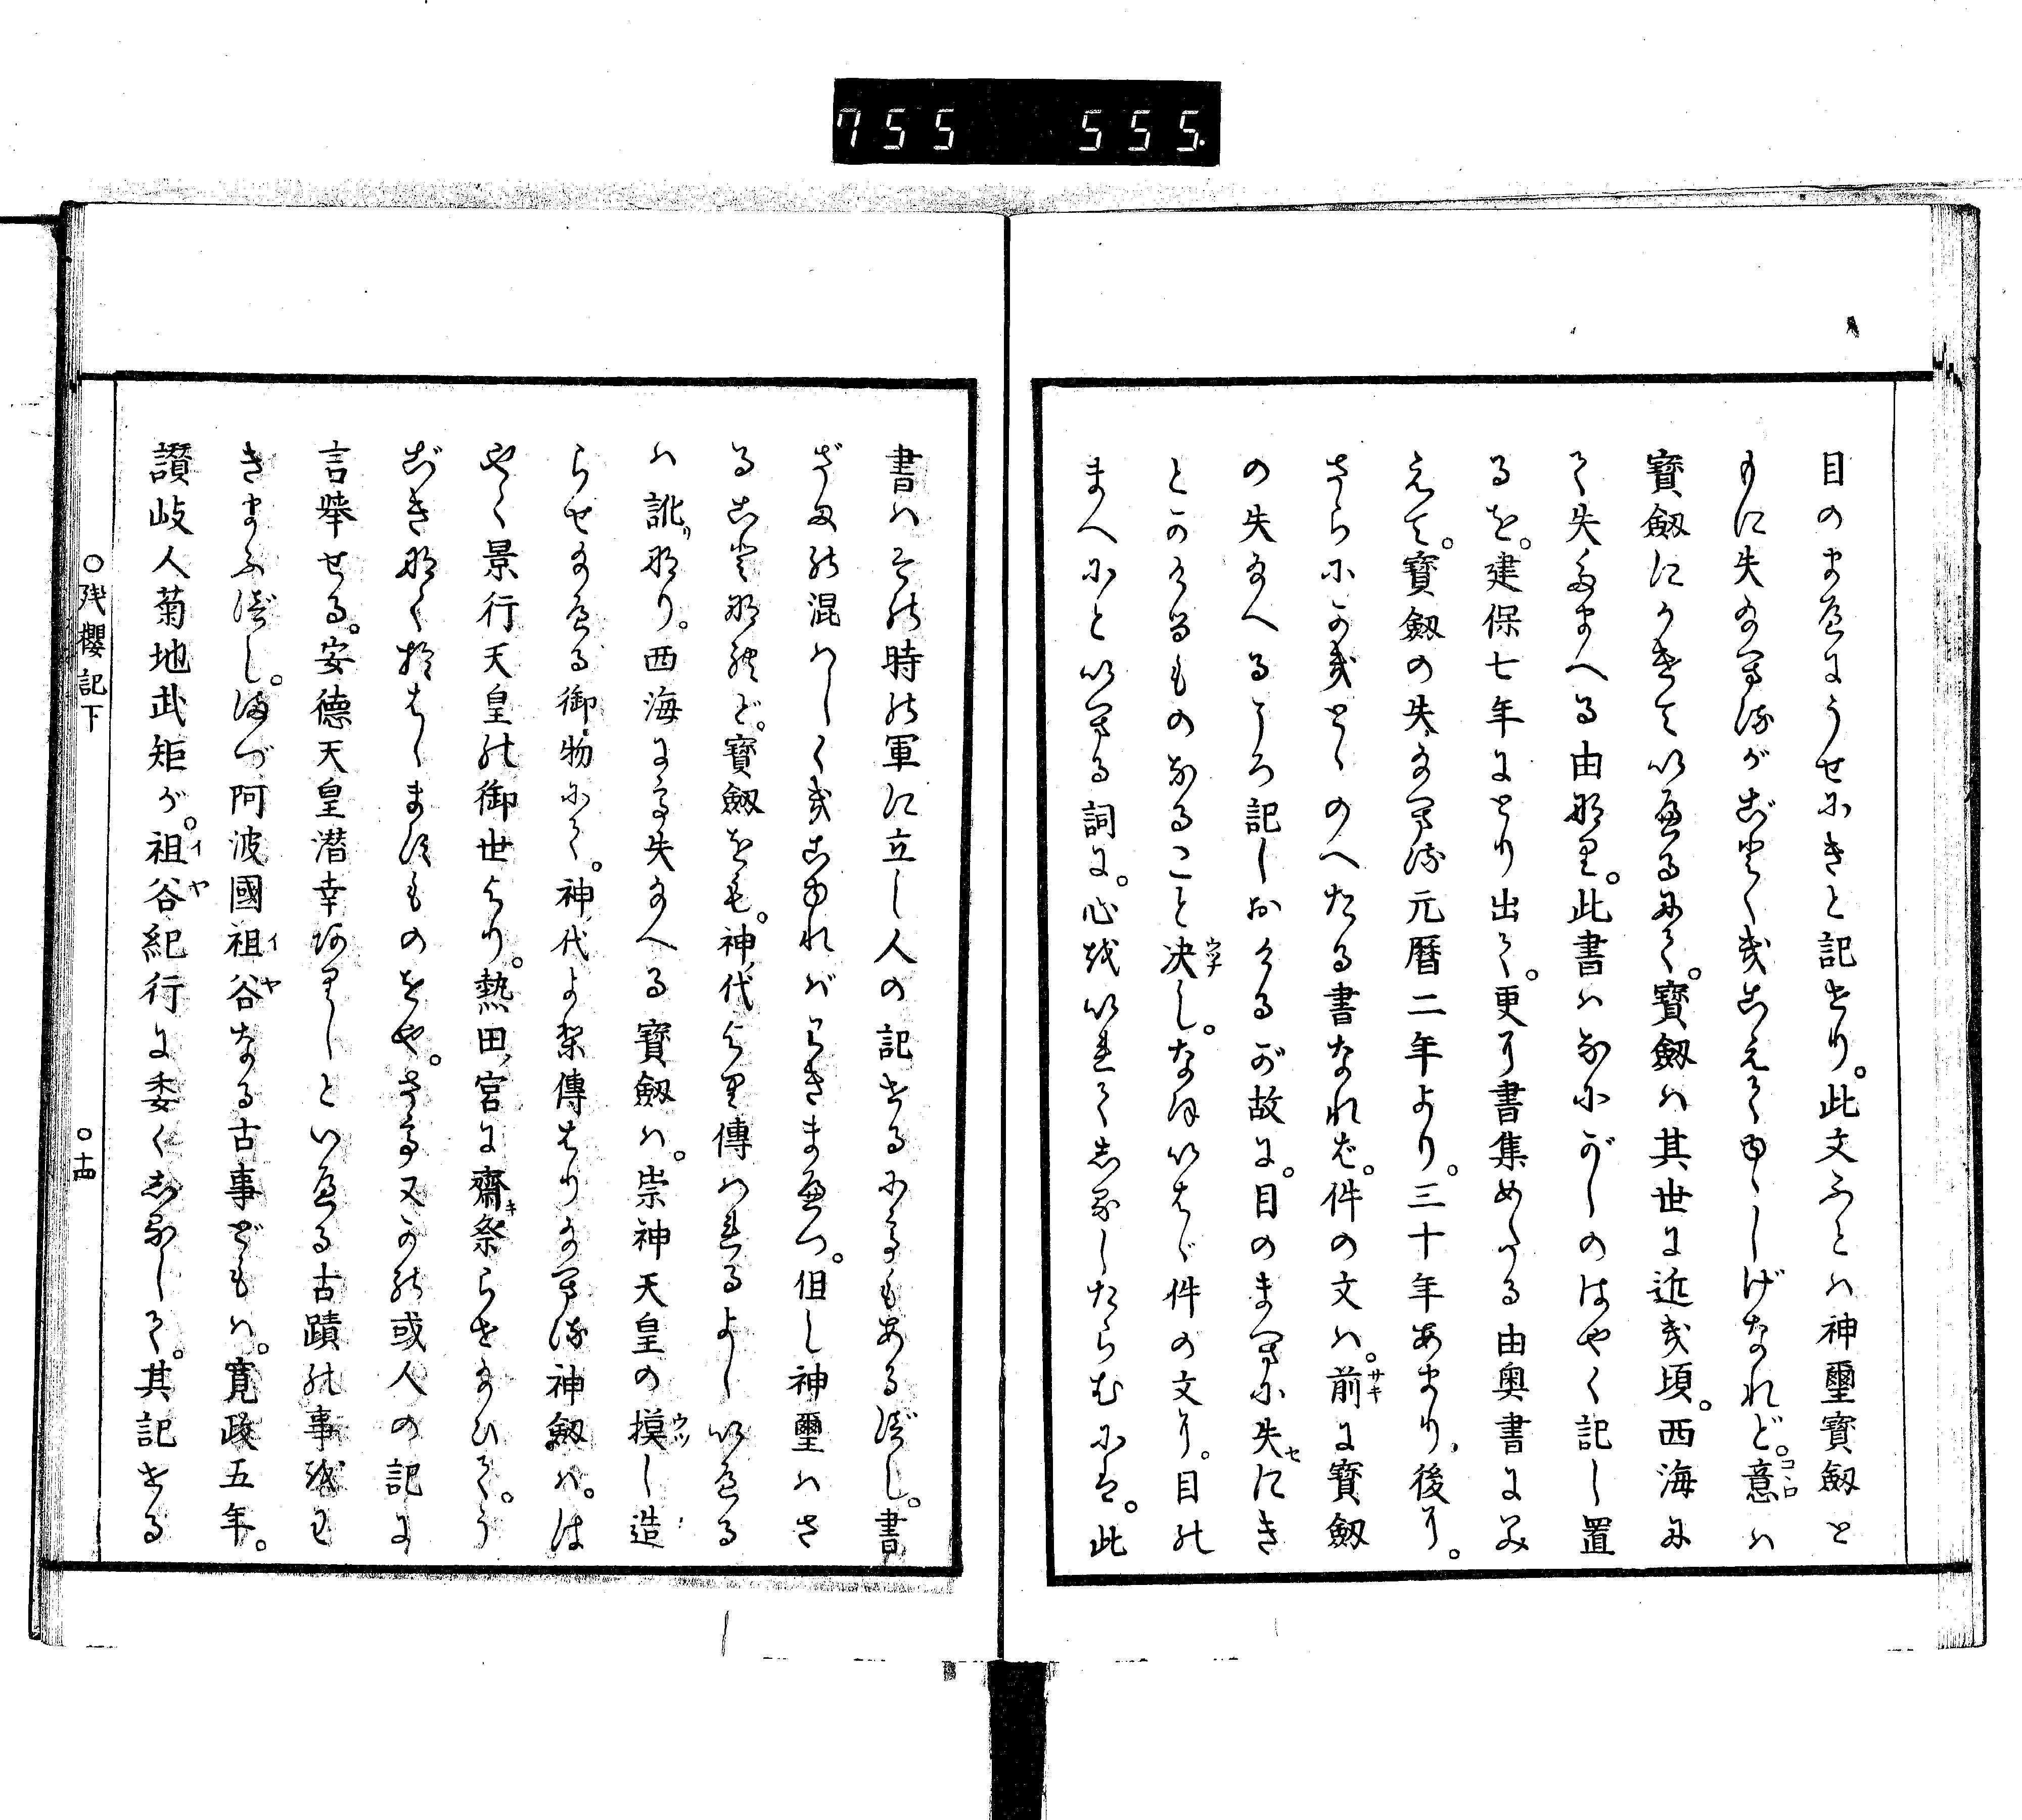 755 555.
目のまへにうせにきと記せり。此文ふとハ神璽寶劔と
もに失給へるがごとくきこえてゆゝしげなれど。意ハ
寶劔にかきていへるにて。寶劔ハ其世に近き頃。西海に
て失たまへる由なり。此書ハなにがしのはやく記し置
るを。建保七年にとり出て。更に書集めたる由奥書にみ
えて。寶劔の失給へる元暦二年より。三十年あまり後に。
さらにかきとゝのへたる書なれば。件の文ハ。前に寶劔
の失給へるころ記しおけるが故に。目のまへに失にき
とかけるものなること决し。なほいはゞ件の文に。目の
まへにといへる詞に。心をいれてしるしたらむには。此
書ハその時の軍に立し人の記せるにてもあるべし。書
ざまの混はしくきこゆればおきまへつ。但し神璽ハさ
ることなれど。寶劔をも。神代より傳はれるよしいへる
ハ訛なり。西海にて失給へる寶劔ハ。崇神天皇の摸し造
らせ給へる御物にて。神代より傳はり給へる神劔ハ。は
やく景行天皇の御世より。熱田宮に齋祭らせ給ひて。う
ごきなくおはしますものをや。さて又かの或人の記に
言擧せる。安德天皇潜幸ありしといへる古蹟の事をわ
きまふべし。まづ阿波國祖谷なる古事どもハ。寛政五年。
讃岐人菊地武矩が。祖谷紀行に委くしるして。其記せる
○残櫻記下
○十四